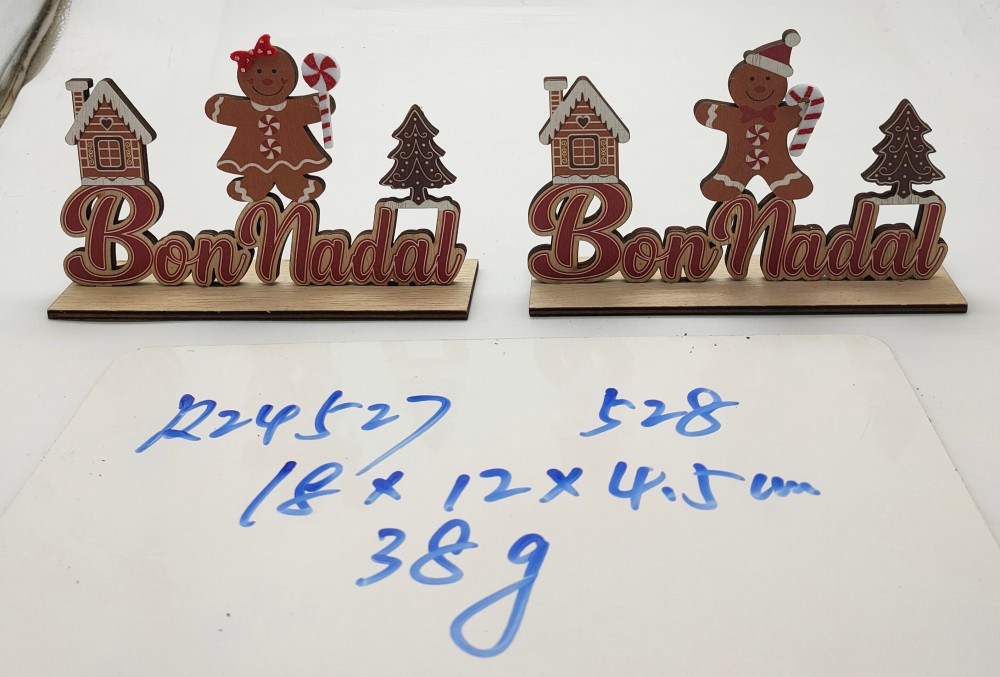 Bon Nadal
Bon Nadal
R24527 528
18 x 12 x 4.5 cm
38g